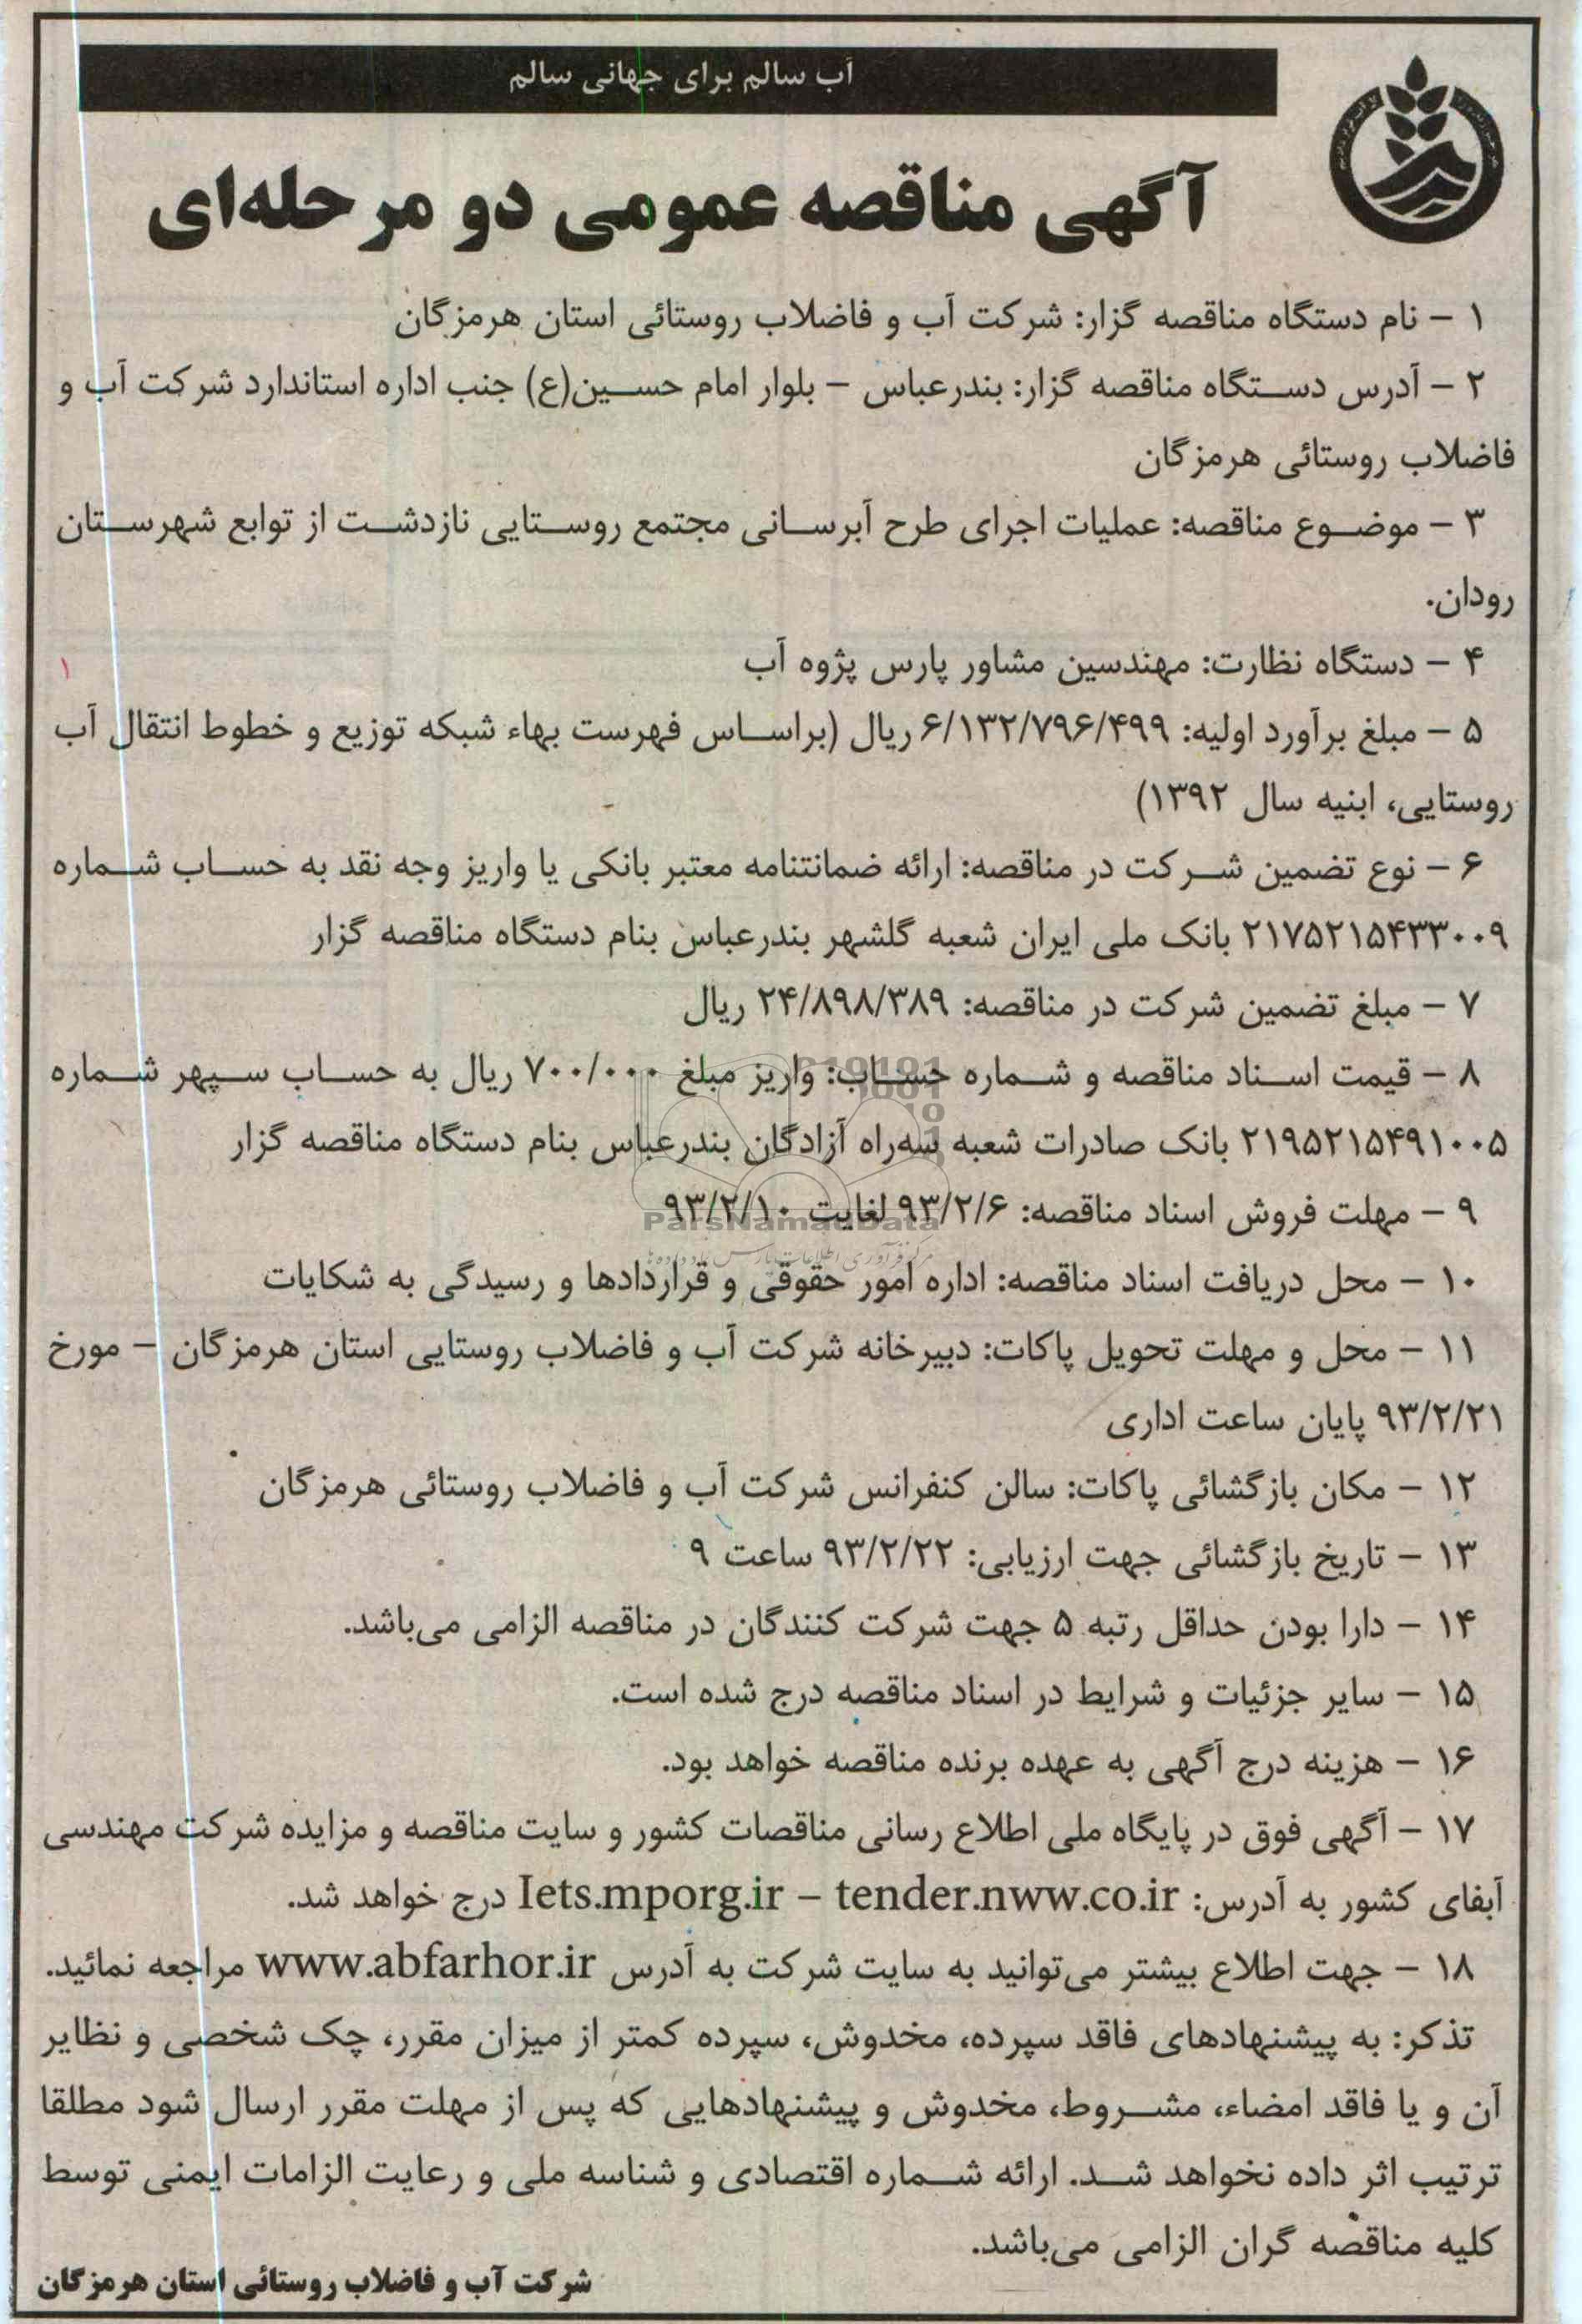 آب سالم برای جهانی سالم
آگهی مناقصه عمومی دو مرحله‌ای
۱ – نام دستگاه مناقصه گزار: شرکت آب و فاضلاب روستائی استان هرمزگان
۲ – آدرس دستگاه مناقصه گزار: بندرعباس – بلوار امام حسین(ع) جنب اداره استاندارد شرکت آب و
فاضلاب روستائی هرمزگان
۳ – موضوع مناقصه: عملیات اجرای طرح آبرسانی مجتمع روستایی نازدشت از توابع شهرستان
رودان.
۴ – دستگاه نظارت: مهندسین مشاور پارس پژوه آب
۵ – مبلغ برآورد اولیه: ۶/۱۳۲/۷۹۶/۴۹۹ ریال (براساس فهرست بهاء شبکه توزیع و خطوط انتقال آب
روستایی، ابنیه سال ۱۳۹۲)
۶ – نوع تضمین شرکت در مناقصه: ارائه ضمانتنامه معتبر بانکی یا واریز وجه نقد به حساب شماره
۲۱۷۵۲۱۵۴۳۳۰۰۹ بانک ملی ایران شعبه گلشهر بندرعباس بنام دستگاه مناقصه گزار
۷ – مبلغ تضمین شرکت در مناقصه: ۲۴/۸۹۸/۳۸۹ ریال
۸ – قیمت اسناد مناقصه و شماره حساب: واریز مبلغ ۷۰۰/۰۰۰ ریال به حساب سپهر شماره
۲۱۹۵۲۱۵۴۹۱۰۰۵ بانک صادرات شعبه سه‌راه آزادگان بندرعباس بنام دستگاه مناقصه گزار
۹ – مهلت فروش اسناد مناقصه: ۹۳/۲/۶ لغایت ۹۳/۲/۱۰
ParsNamadData
۱۰ – محل دریافت اسناد مناقصه: اداره امور حقوقی و قراردادها و رسیدگی به شکایات
۱۱ – محل و مهلت تحویل پاکات: دبیرخانه شرکت آب و فاضلاب روستایی استان هرمزگان – مورخ
۹۳/۲/۲۱ پایان ساعت اداری
۱۲ – مکان بازگشائی پاکات: سالن کنفرانس شرکت آب و فاضلاب روستائی هرمزگان
۱۳ – تاریخ بازگشائی جهت ارزیابی: ۹۳/۲/۲۲ ساعت ۹
۱۴ – دارا بودن حداقل رتبه ۵ جهت شرکت کنندگان در مناقصه الزامی می‌باشد.
۱۵ – سایر جزئیات و شرایط در اسناد مناقصه درج شده است.
۱۶ – هزینه درج آگهی به عهده برنده مناقصه خواهد بود.
۱۷ – آگهی فوق در پایگاه ملی اطلاع رسانی مناقصات کشور و سایت مناقصه و مزایده شرکت مهندسی
آبفای کشور به آدرس: Iets.mporg.ir – tender.nww.co.ir درج خواهد شد.
۱۸ – جهت اطلاع بیشتر می‌توانید به سایت شرکت به آدرس www.abfarhor.ir مراجعه نمائید.
تذکر: به پیشنهادهای فاقد سپرده، مخدوش، سپرده کمتر از میزان مقرر، چک شخصی و نظایر
آن و یا فاقد امضاء، مشروط، مخدوش و پیشنهادهایی که پس از مهلت مقرر ارسال شود مطلقا
ترتیب اثر داده نخواهد شد. ارائه شماره اقتصادی و شناسه ملی و رعایت الزامات ایمنی توسط
کلیه مناقصه گران الزامی می‌باشد.
شرکت آب و فاضلاب روستائی استان هرمزگان